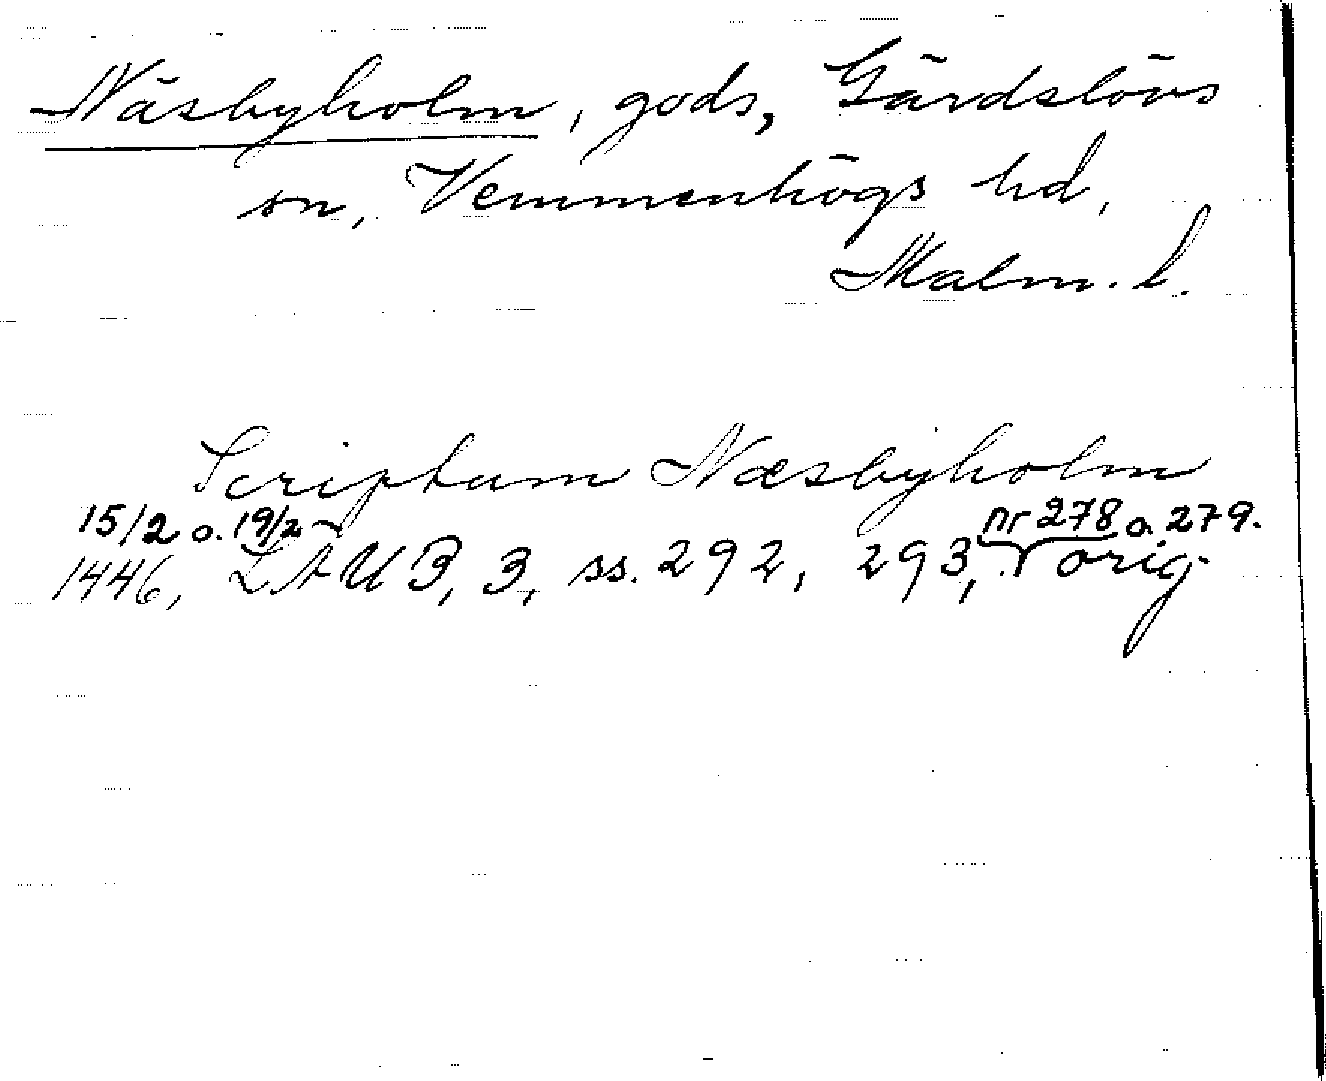 Näsbyholm, gods, Gärdslövs
sn, Vemmenhögs hd,
Malm. l.
Scriptum Næsbyholm
15/2 o. 19/2 nr 278 o. 279.
1446, LÄUB, 3, ss. 292, 293, orig.